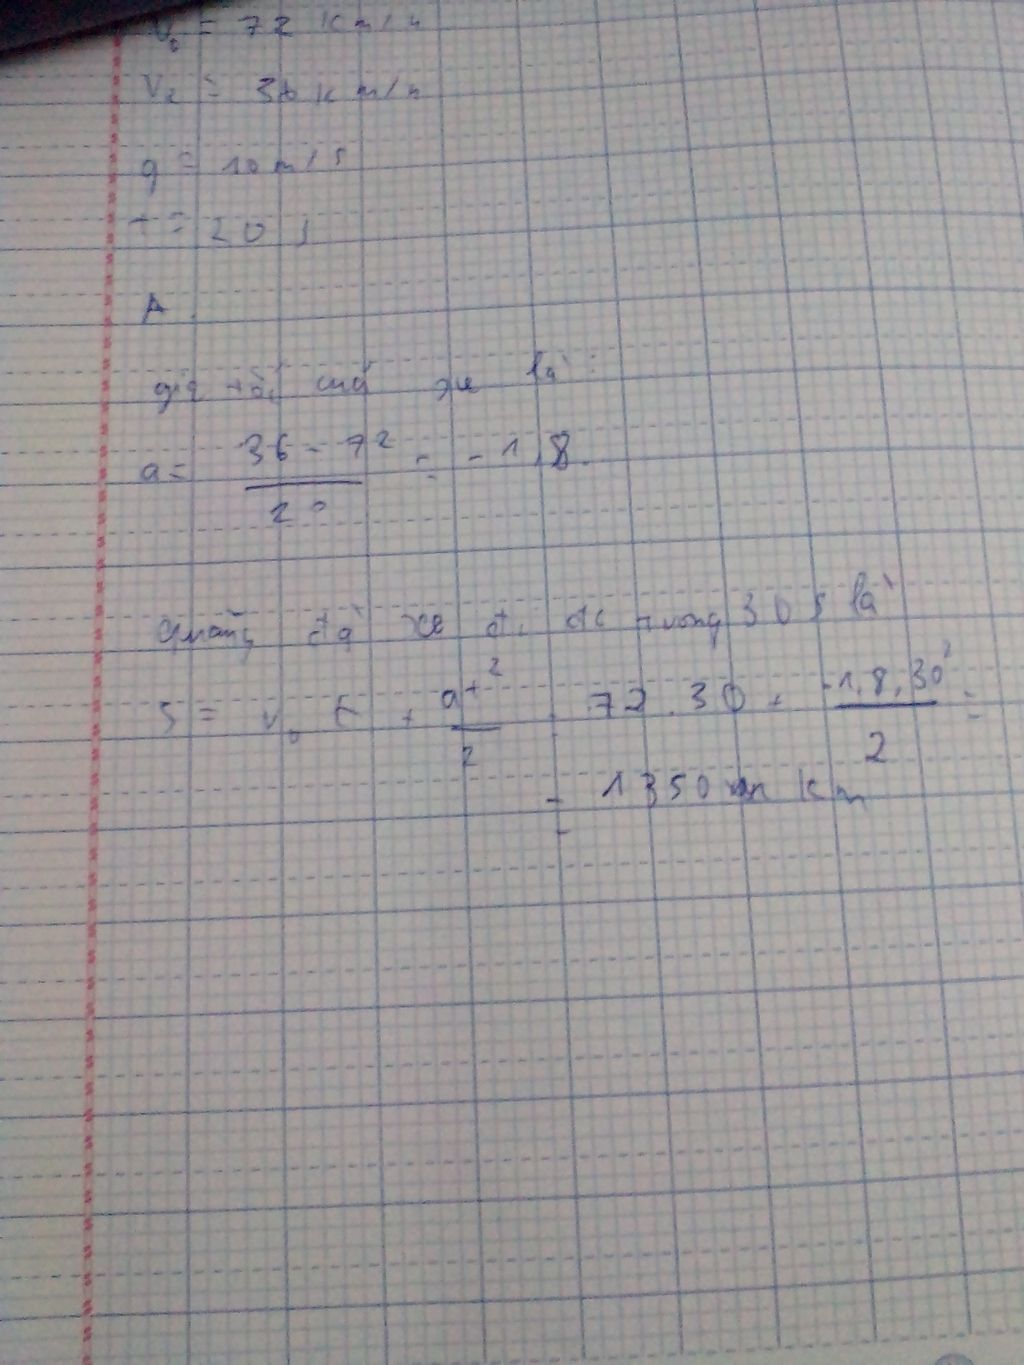 V₀ = 72 km/h
V₂ = 36 km/h
g = 10 m/s
t = 20 s
A
gia tốc của xe là :
a = \frac{36 - 72}{20} = - 1,8
quãng đg xe đi đc trong 30 s là
S = v₀ t + \frac{at²}{2} = 72.30 + \frac{-1,8.30²}{2} =
= 1350 km